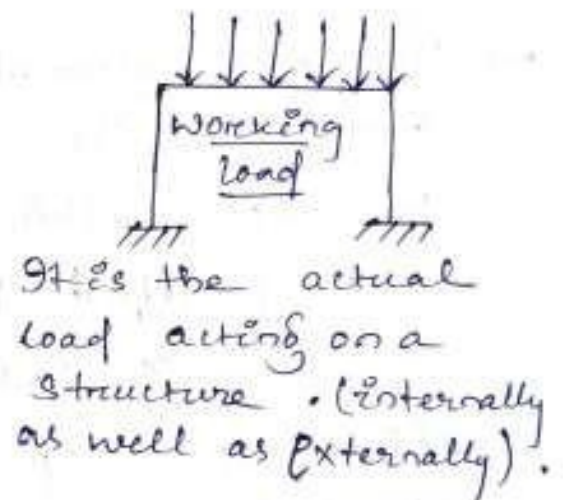 Working
load
It is the actual
load acting on a
structure. (internally
as well as externally).